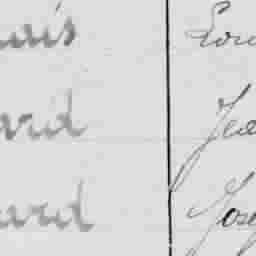 uais Lou
ard Jea
uard Jose